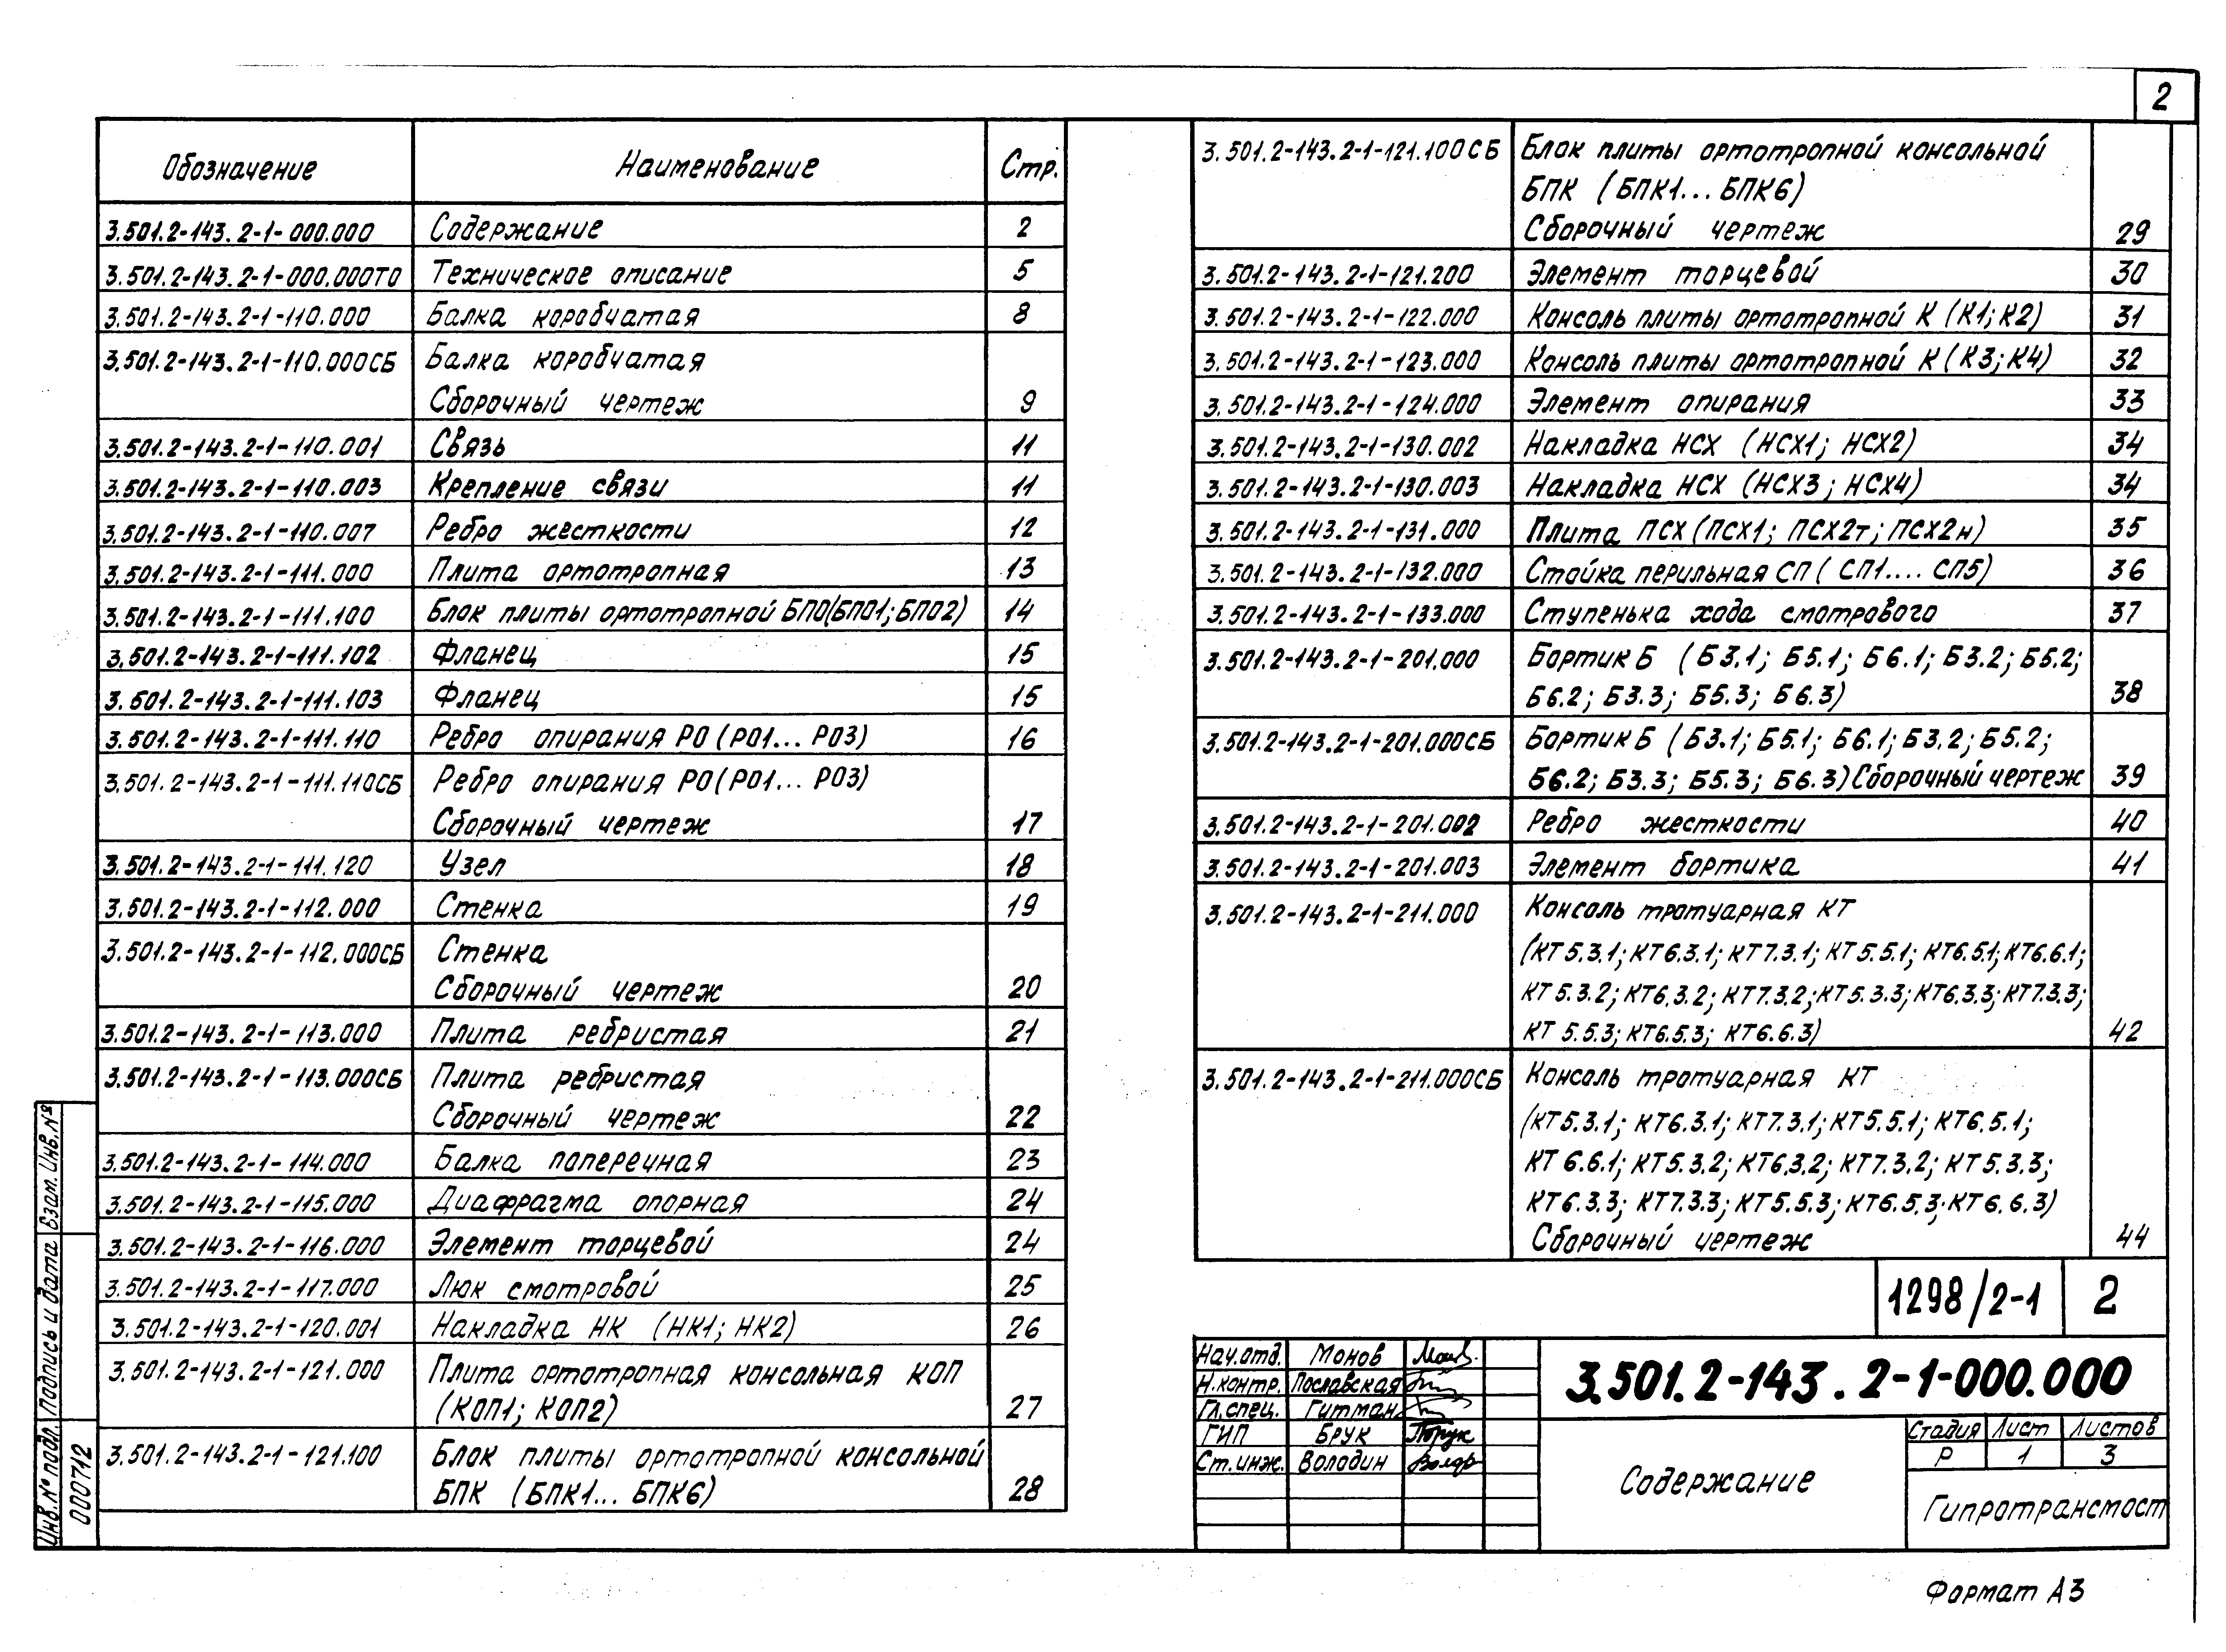 2
Обозначение Наименование Стр.
3.501.2-143.2-1-000.000 Содержание 2
3.501.2-143.2-1-000.000ТО Техническое описание 5
3.501.2-143.2-1-110.000 Балка коробчатая 8
3.501.2-143.2-1-110.000СБ Балка коробчатая
Сборочный чертеж 9
3.501.2-143.2-1-110.001 Связь 11
3.501.2-143.2-1-110.003 Крепление связи 11
3.501.2-143.2-1-110.007 Ребро жесткости 12
3.501.2-143.2-1-111.000 Плита ортотропная 13
3.501.2-143.2-1-111.100 Блок плиты ортотропной БПО(БПО1; БПО2) 14
3.501.2-143.2-1-111.102 Фланец 15
3.501.2-143.2-1-111.103 Фланец 15
3.501.2-143.2-1-111.110 Ребро опирания РО (РО1... РО3) 16
3.501.2-143.2-1-111.110СБ Ребро опирания РО (РО1... РО3)
Сборочный чертеж 17
3.501.2-143.2-1-111.120 Узел 18
3.501.2-143.2-1-112.000 Стенка 19
3.501.2-143.2-1-112.000СБ Стенка
Сборочный чертеж 20
3.501.2-143.2-1-113.000 Плита ребристая 21
3.501.2-143.2-1-113.000СБ Плита ребристая
Сборочный чертеж 22
3.501.2-143.2-1-114.000 Балка поперечная 23
3.501.2-143.2-1-115.000 Диафрагма опорная 24
3.501.2-143.2-1-116.000 Элемент торцевой 24
3.501.2-143.2-1-117.000 Люк смотровой 25
3.501.2-143.2-1-120.001 Накладка НК (НК1; НК2) 26
3.501.2-143.2-1-121.000 Плита ортотропная консольная КОП
(КОП1; КОП2) 27
3.501.2-143.2-1-121.100 Блок плиты ортотропной консольной
БПК (БПК1... БПК6) 28
3.501.2-143.2-1-121.100СБ Блок плиты ортотропной консольной
БПК (БПК1... БПК6)
Сборочный чертеж 29
3.501.2-143.2-1-121.200 Элемент торцевой 30
3.501.2-143.2-1-122.000 Консоль плиты ортотропной К (К1; К2) 31
3.501.2-143.2-1-123.000 Консоль плиты ортотропной К (К3; К4) 32
3.501.2-143.2-1-124.000 Элемент опирания 33
3.501.2-143.2-1-130.002 Накладка НСХ (НСХ1; НСХ2) 34
3.501.2-143.2-1-130.003 Накладка НСХ (НСХ3; НСХ4) 34
3.501.2-143.2-1-131.000 Плита ПСХ (ПСХ1; ПСХ2т; ПСХ2н) 35
3.501.2-143.2-1-132.000 Стойка перильная СП ( СП1.... СП5) 36
3.501.2-143.2-1-133.000 Ступенька хода смотрового 37
3.501.2-143.2-1-201.000 Бортик Б (Б3.1; Б5.1; Б6.1; Б3.2; Б5.2;
Б6.2; Б3.3; Б5.3; Б6.3) 38
3.501.2-143.2-1-201.000СБ Бортик Б (Б3.1; Б5.1; Б6.1; Б3.2; Б5.2;
Б6.2; Б3.3; Б5.3; Б6.3) Сборочный чертеж 39
3.501.2-143.2-1-201.002 Ребро жесткости 40
3.501.2-143.2-1-201.003 Элемент бортика 41
3.501.2-143.2-1-211.000 Консоль тротуарная КТ
(КТ5.3.1; КТ6.3.1; КТ7.3.1; КТ5.5.1; КТ6.5.1; КТ6.6.1;
КТ5.3.2; КТ6.3.2; КТ7.3.2; КТ5.3.3; КТ6.3.3; КТ7.3.3;
КТ 5.5.3; КТ6.5.3; КТ6.6.3) 42
3.501.2-143.2-1-211.000СБ Консоль тротуарная КТ
(КТ5.3.1; КТ6.3.1; КТ7.3.1; КТ5.5.1; КТ6.5.1;
КТ6.6.1; КТ5.3.2; КТ6.3.2; КТ7.3.2; КТ5.3.3;
КТ6.3.3; КТ7.3.3; КТ5.5.3; КТ6.5.3; КТ6.6.3)
Сборочный чертеж 44
1298/2-1 2
Нач.отд. Монов
Н.контр. Пославская
Гл.спец. Гитман
ГИП Брук
Ст.инж. Володин
3.501.2-143.2-1-000.000
Содержание
Стадия Лист Листов
Р 1 3
Гипротрансмост
Формат А3
Инв.№ подл. Подпись и дата Взам. Инв.№
000712